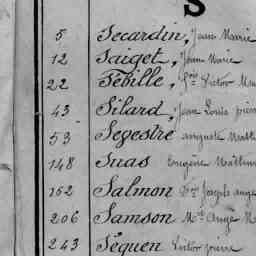 S
5 Secardin, Jean Marie
12 Saiget, Jean Marie
22 Sébille, Victor
43 Silard, Jean Louis pierre
53 Segestre auguste Math
148 Suas Eugène Mathurin
162 Salmon Joseph ange
206 Samson Mie Ange
243 Séquen Victor pierre